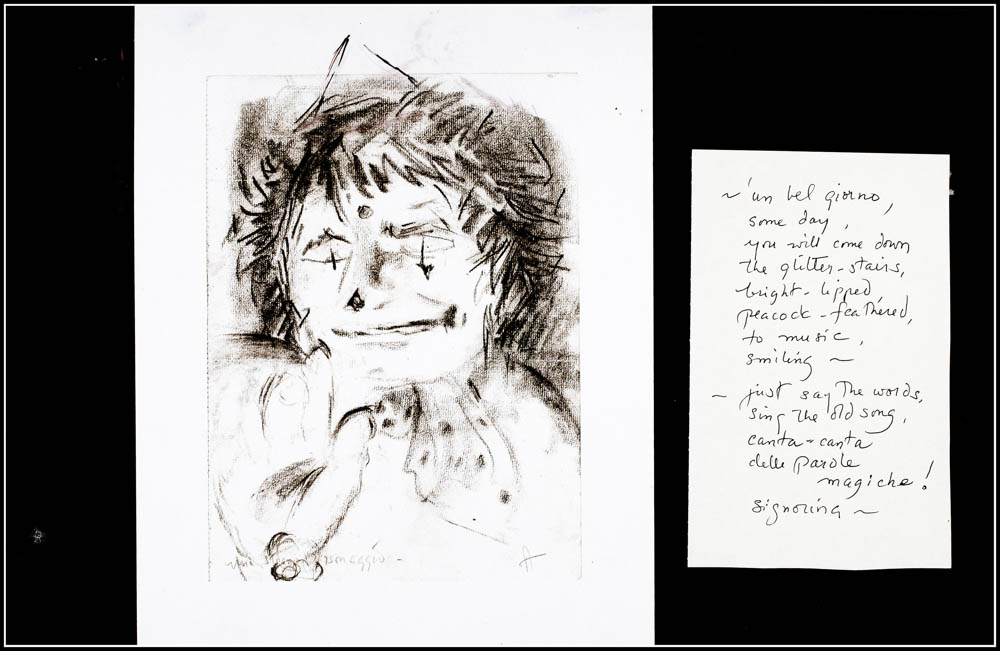 ~ 'un bel giorno,
some day,
you will come down
the glitter-stairs,
bright-lipped
peacock-feathered,
to music,
smiling ~
~ just say the words,
sing the old song,
canta-canta
delle parole
magiche!
signorina ~